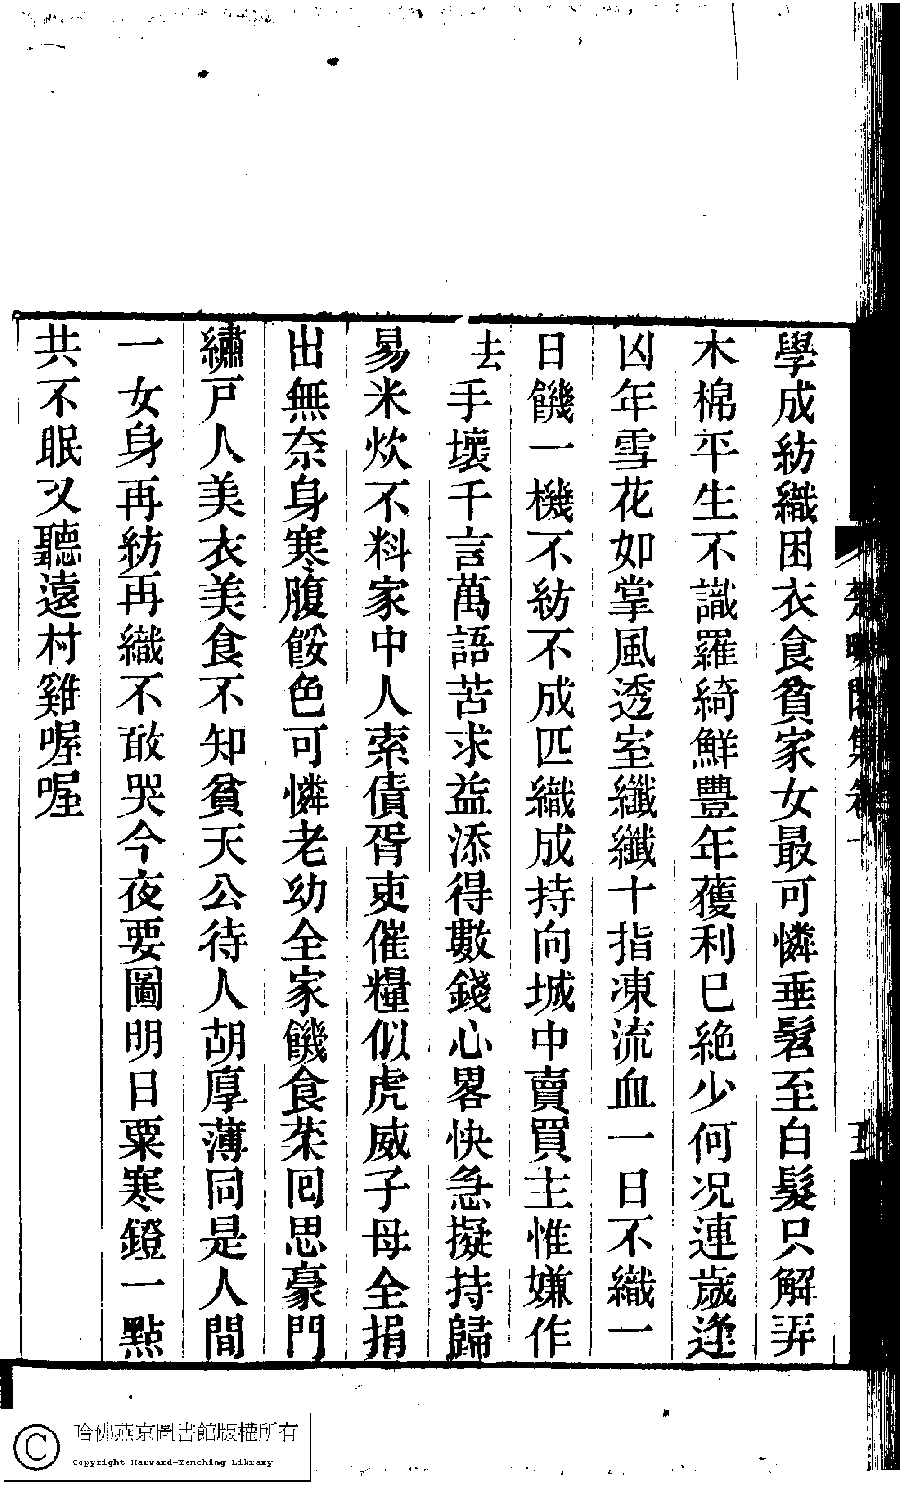 學成紡織困衣食貧家女最可憐垂髫至白髮只解弄
木棉平生不識羅綺鮮豐年獲利已絶少何况連歲逢
凶年雪花如掌風透室纖纖十指凍流血一日不織一
日饑一機不紡不成匹織成持向城中賣買主惟嫌作
去手壞千言萬語苦求益添得數錢心畧快急擬持歸
易米炊不料家中人索債胥吏催糧似虎威子母全捐
出無奈身寒腹餒色可憐老幼全家饑食荣囘思豪門
繡戸人美衣美食不知貧天公待人胡厚薄同是人間
一女身再紡再織不敢哭今夜要圖明日粟寒鐙一點
共不眠又聽遠村雞喔喔
哈佛燕京圖書館版權所有
Copyright Harvard-Yenching Library